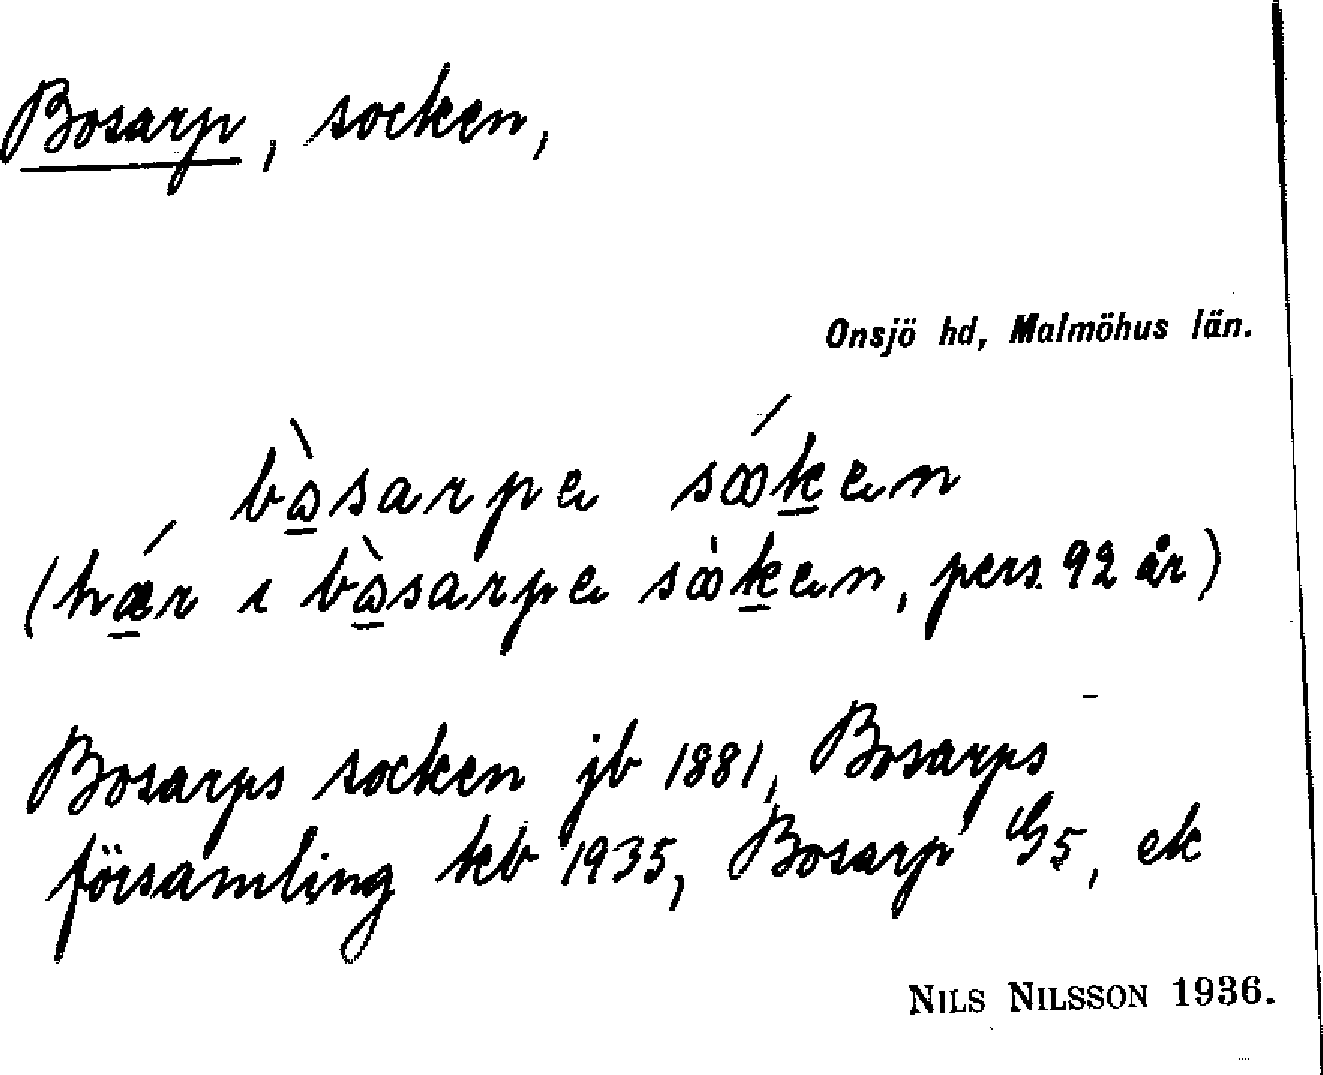 Bosarp, socken,
Onsjö hd, Malmöhus län.
bò̱sarpa sǿḵan
(hǽ̱r i bò̱sarpa sø̀ḵan, pers. 92 år)
Bosarps socken jb 1881, Bosarps
församling kb 1935, Bosarp G5, ek
NILS NILSSON 1936.